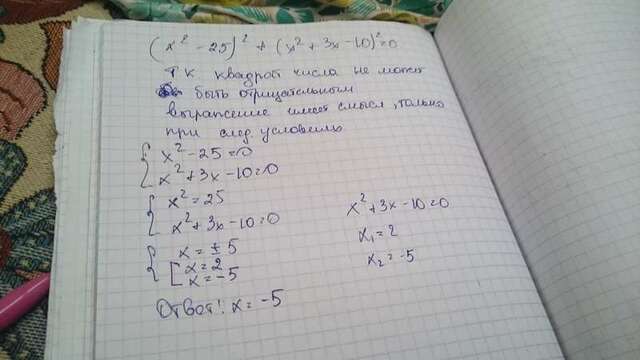 (x² - 25)² + (x² + 3x - 10)² = 0
Т К квадрат числа не может
быть отрицательным
выражение имеет смысл, только
при след условиях
{ x² - 25 = 0
x² + 3x - 10 = 0
{ x² = 25
x² + 3x - 10 = 0
{ x = ± 5
[ x = 2
x = -5
x² + 3x - 10 = 0
x₁ = 2
x₂ = -5
Ответ! x = -5